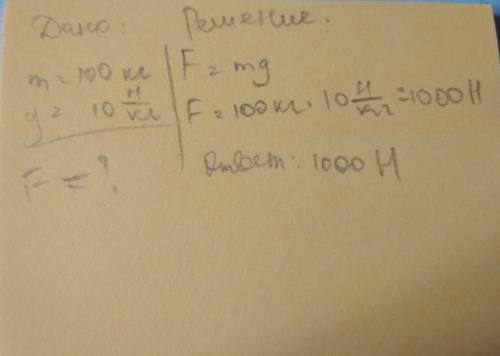 Дано: Решение.
m = 100 кг F = mg
g = 10 Н/кг F = 100 кг · 10 Н/кг = 1000 Н
F = ? Ответ: 1000 Н